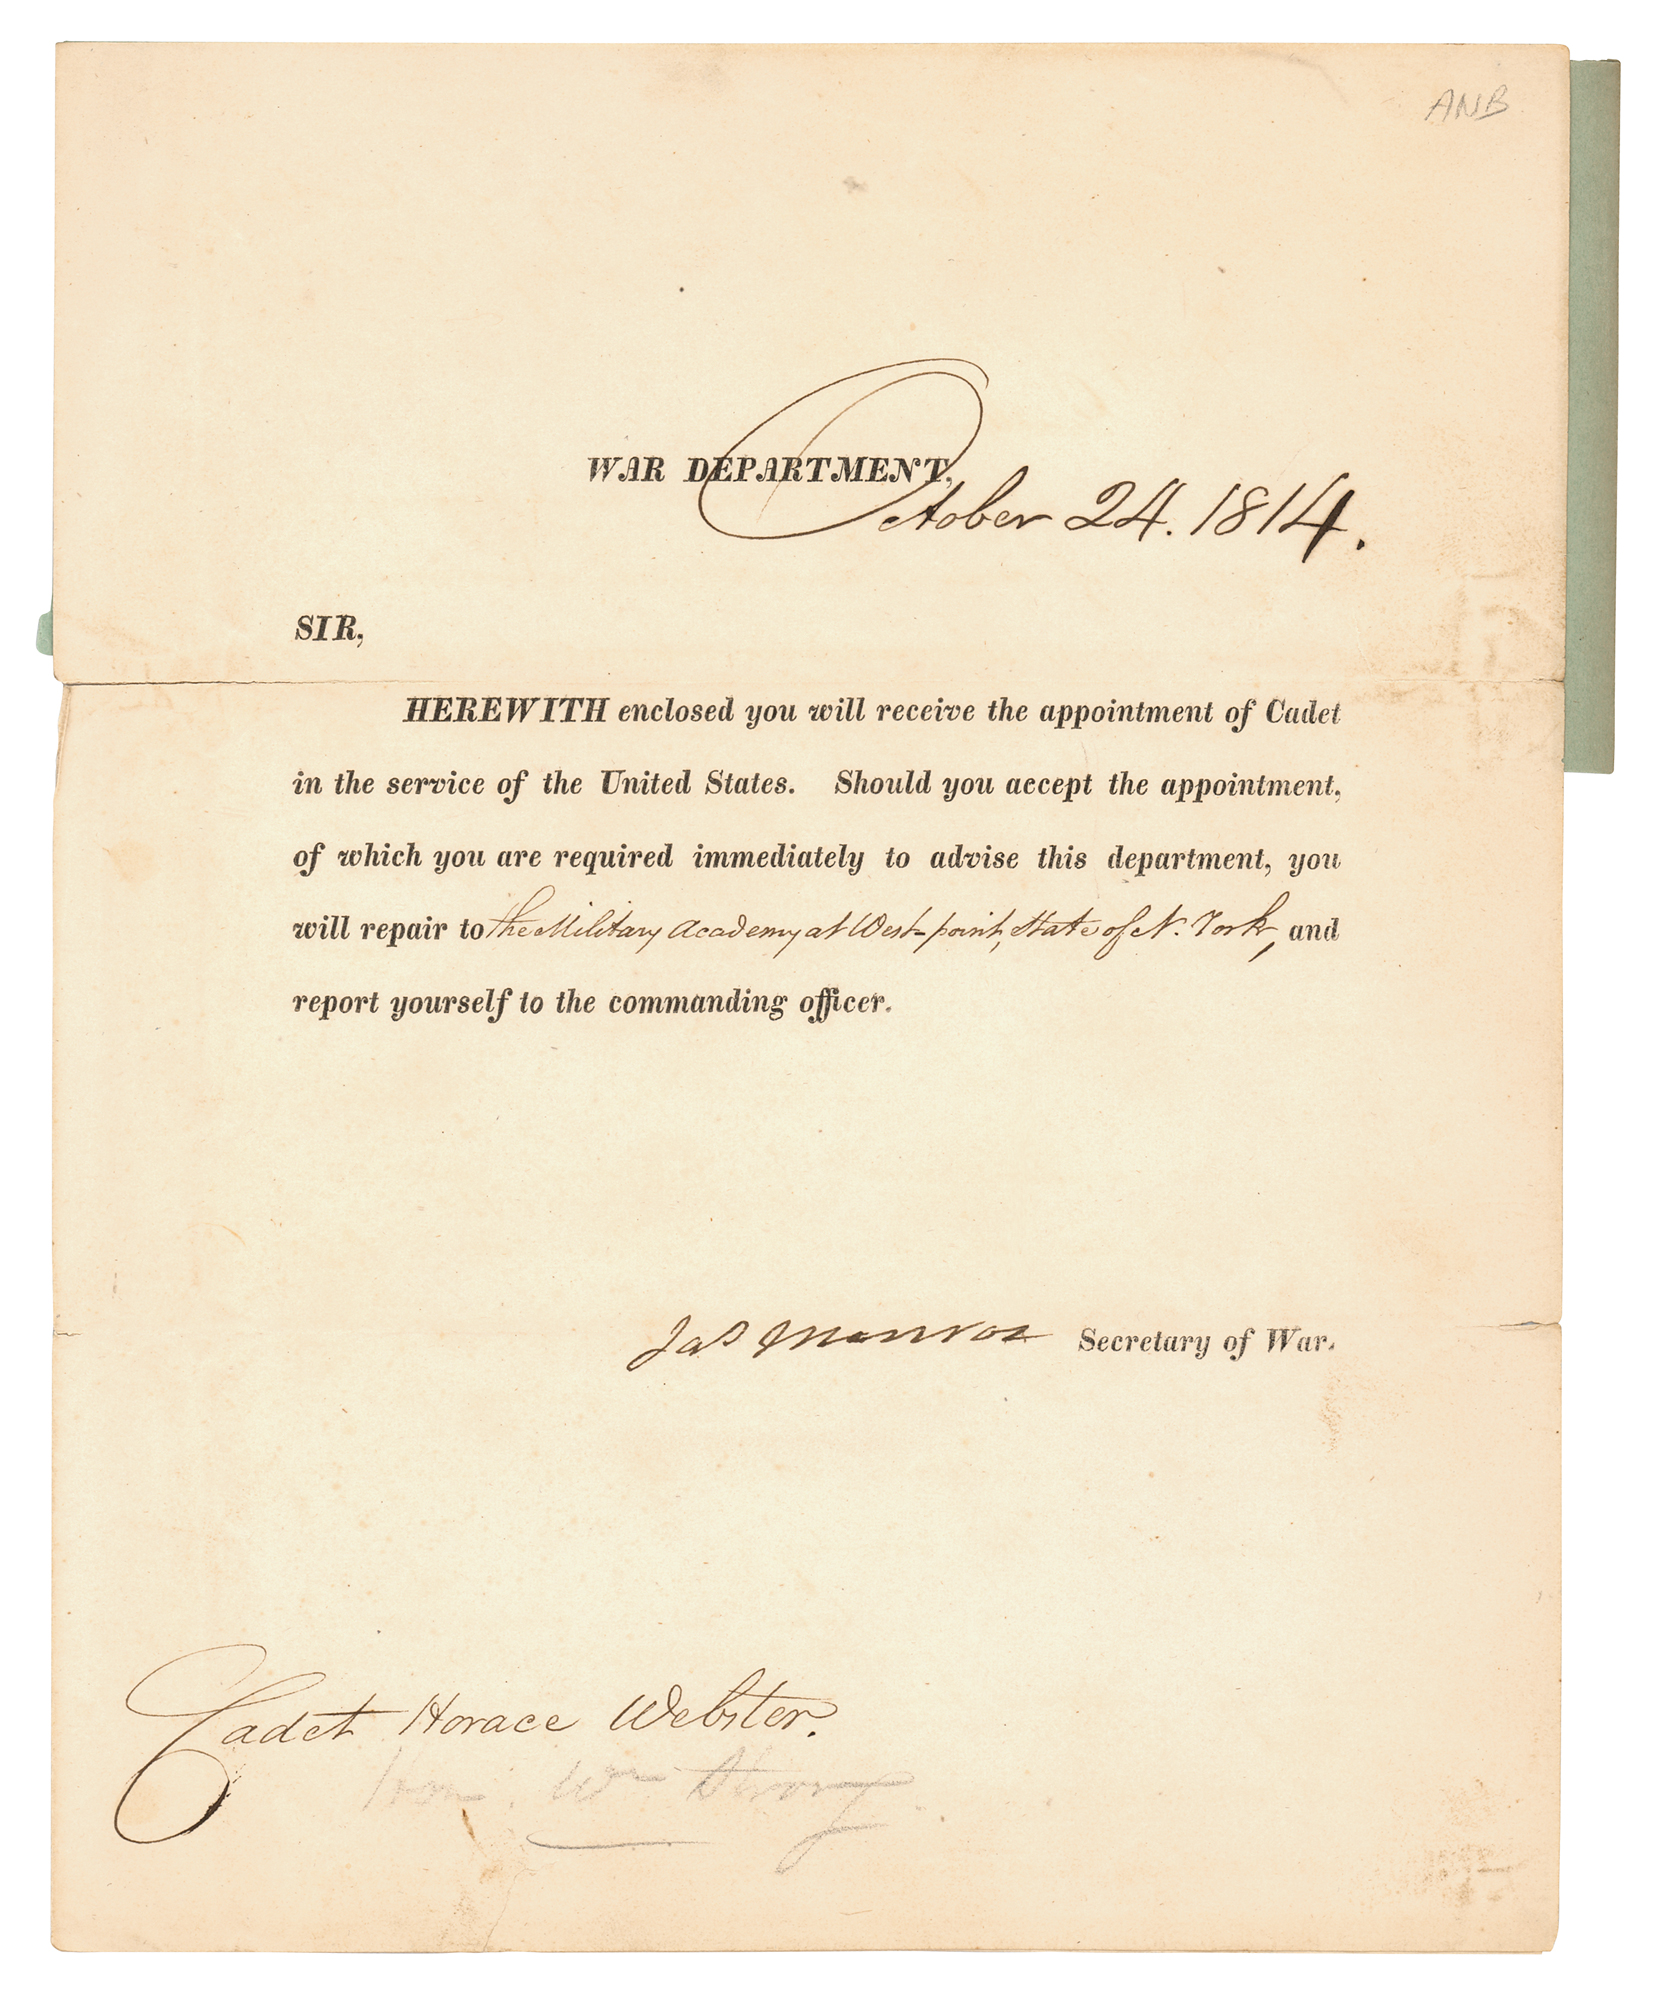 ANB
WAR DEPARTMENT,
October 24. 1814.
SIR,
HEREWITH enclosed you will receive the appointment of Cadet
in the service of the United States. Should you accept the appointment,
of which you are required immediately to advise this department, you
will repair to the Military Academy at West-point, State of N. York, and
report yourself to the commanding officer.
Jas Monroe Secretary of War.
Cadet Horace Webster.
Hon. Wm Strong